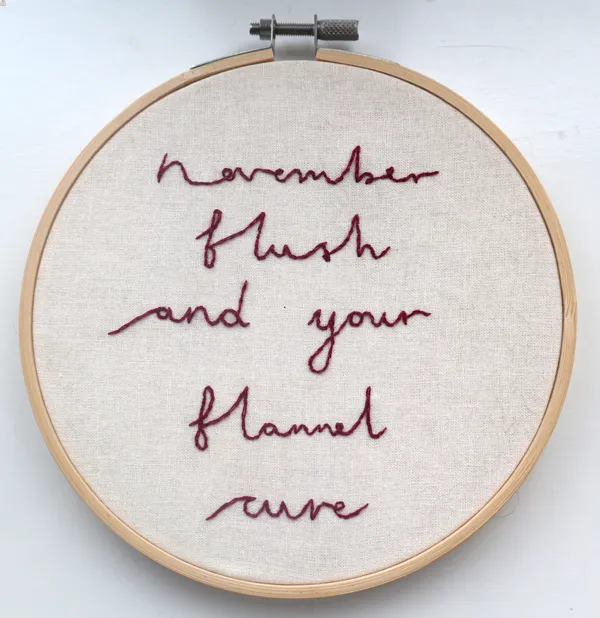 november
flush
and your
flannel
cure